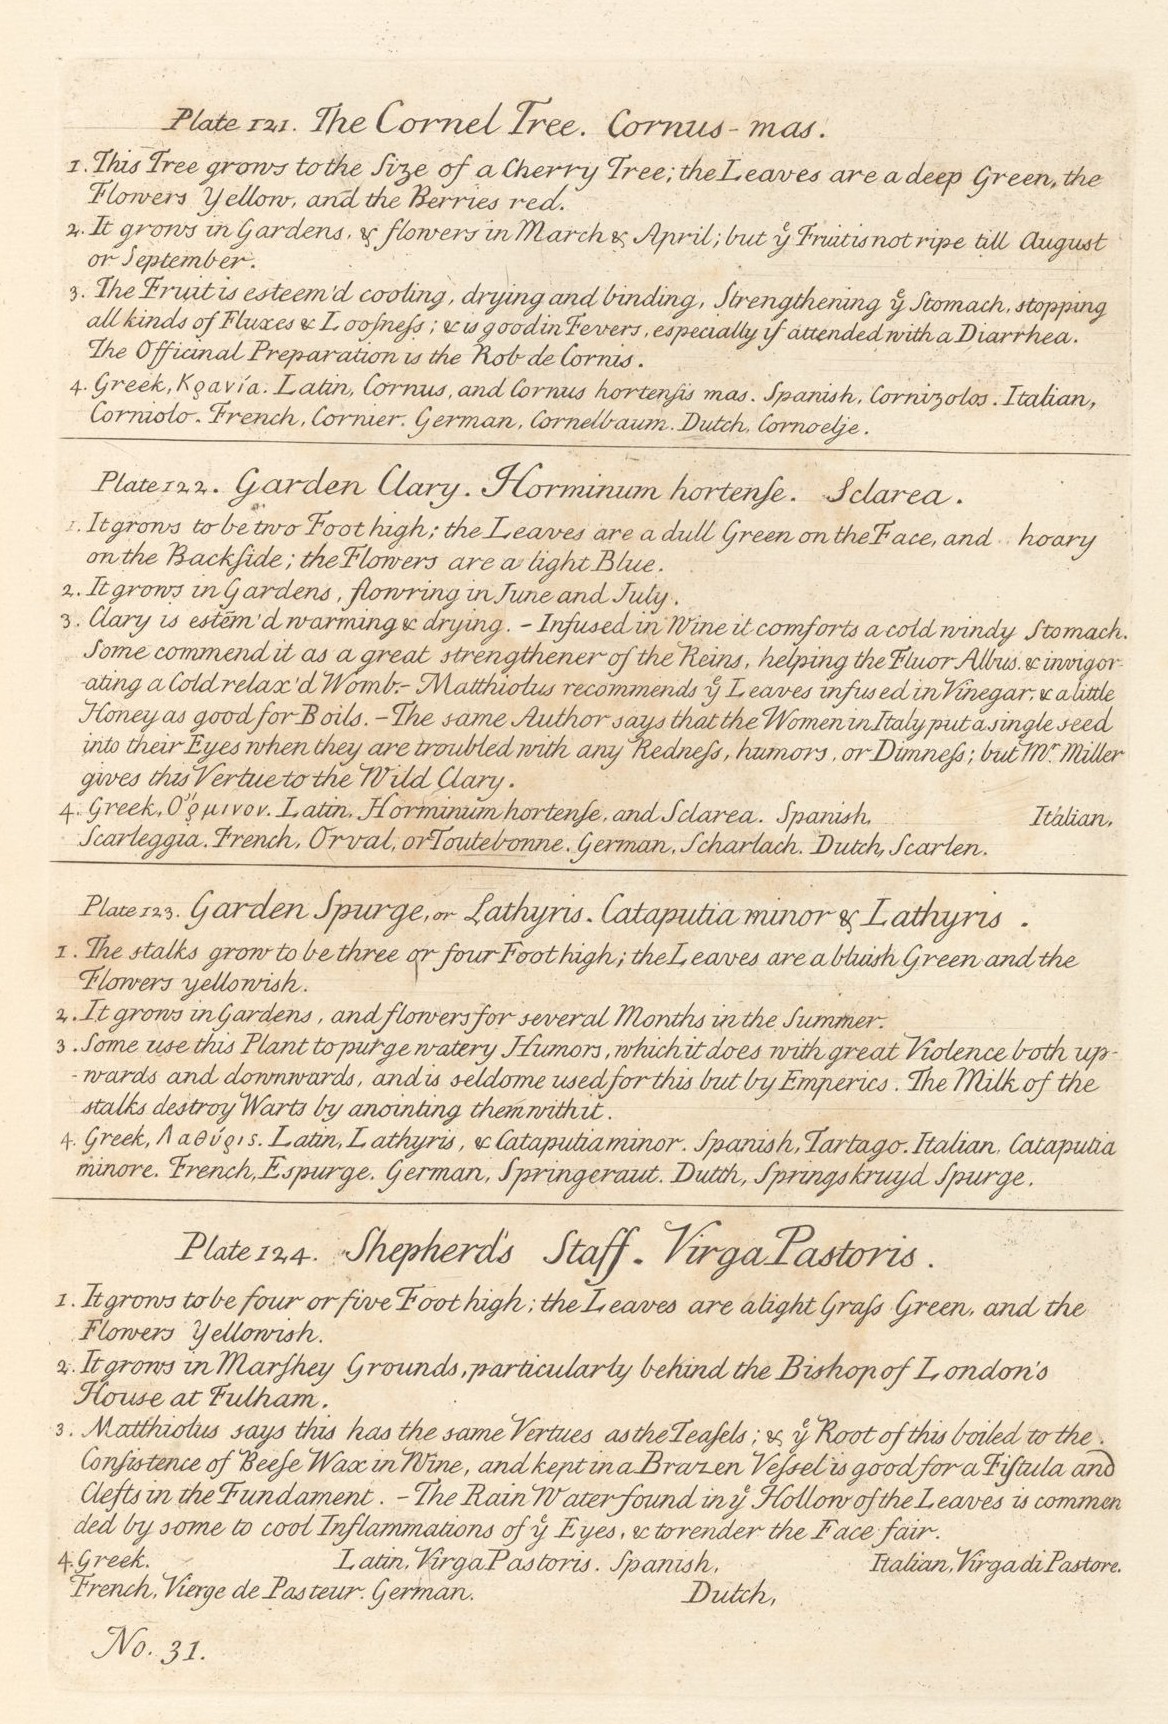 Plate 121. The Cornel Tree. Cornus-mas.
1. This Tree grows to the Size of a Cherry Tree; the Leaves are a deep Green, the
Flowers Yellow, and the Berries red.
2. It grows in Gardens, & flowers in March & April; but yͤ Fruit is not ripe till August
or September.
3. The Fruit is esteem'd cooling, drying and binding, Strengthening yͤ Stomach, stopping
all kinds of Fluxes & Looſneſs; & is good in Fevers, especially if attended with a Diarrhea.
The Officinal Preparation is the Rob de Cornis.
4. Greek, Κρανία. Latin, Cornus, and Cornus hortenſis mas. Spanish, Cornizolos. Italian,
Corniolo. French, Cornier. German, Cornelbaum. Dutch, Cornoelje.
Plate 122. Garden Clary. Horminum hortenſe. Sclarea.
1. It grows to be two Foot high; the Leaves are a dull Green on the Face, and hoary
on the Backſide; the Flowers are a light Blue.
2. It grows in Gardens, flowring in June and July.
3. Clary is estēm'd warming & drying. - Infused in Wine it comforts a cold windy Stomach.
Some commend it as a great strengthener of the Reins, helping the Fluor Albus, & invigor-
-ating a Cold relax'd Womb.- Matthiolus recommends yͤ Leaves infused in Vinegar, & a little
Honey as good for Boils. - The same Author says that the Women in Italy put a single seed
into their Eyes when they are troubled with any Redneſs, humors, or Dimneſs; but Mr. Miller
gives this Vertue to the Wild Clary.
4. Greek, Ὅρμινον. Latin, Horminum hortenſe, and Sclarea. Spanish, Italian,
Scarleggia. French, Orval, or Toutebonne. German, Scharlach. Dutch, Scarlen.
Plate 123. Garden Spurge, or Lathyris. Cataputia minor & Lathyris.
1. The stalks grow to be three or four Foot high; the Leaves are a bluish Green and the
Flowers yellowish.
2. It grows in Gardens, and flowers for several Months in the Summer.
3. Some use this Plant to purge watery Humors, which it does with great Violence both up-
-wards and downwards, and is seldome used for this but by Emperics. The Milk of the
stalks destroy Warts by anointing them with it.
4. Greek, Λαθύρις. Latin, Lathyris, & Cataputia minor. Spanish, Tartago. Italian, Cataputia
minore. French, Espurge. German, Springeraut. Dutch, Springskruyd Spurge.
Plate 124. Shepherd's Staff. Virga Pastoris.
1. It grows to be four or five Foot high; the Leaves are a light Graſs Green, and the
Flowers Yellowish.
2. It grows in Marſhey Grounds, particularly behind the Bishop of London's
House at Fulham.
3. Matthiolus says this has the same Vertues as the Teaſels; & yͤ Root of this boiled to the
Conſistence of Beeſe Wax in Wine, and kept in a Brazen Veſsel is good for a Fiſtula and
Clefts in the Fundament. - The Rain Water found in yͤ Hollow of the Leaves is commen
ded by some to cool Inflammations of yͤ Eyes, & to render the Face fair.
4. Greek. Latin, Virga Pastoris. Spanish, Italian, Virga di Pastore.
French, Vierge de Pasteur. German. Dutch,
No. 31.